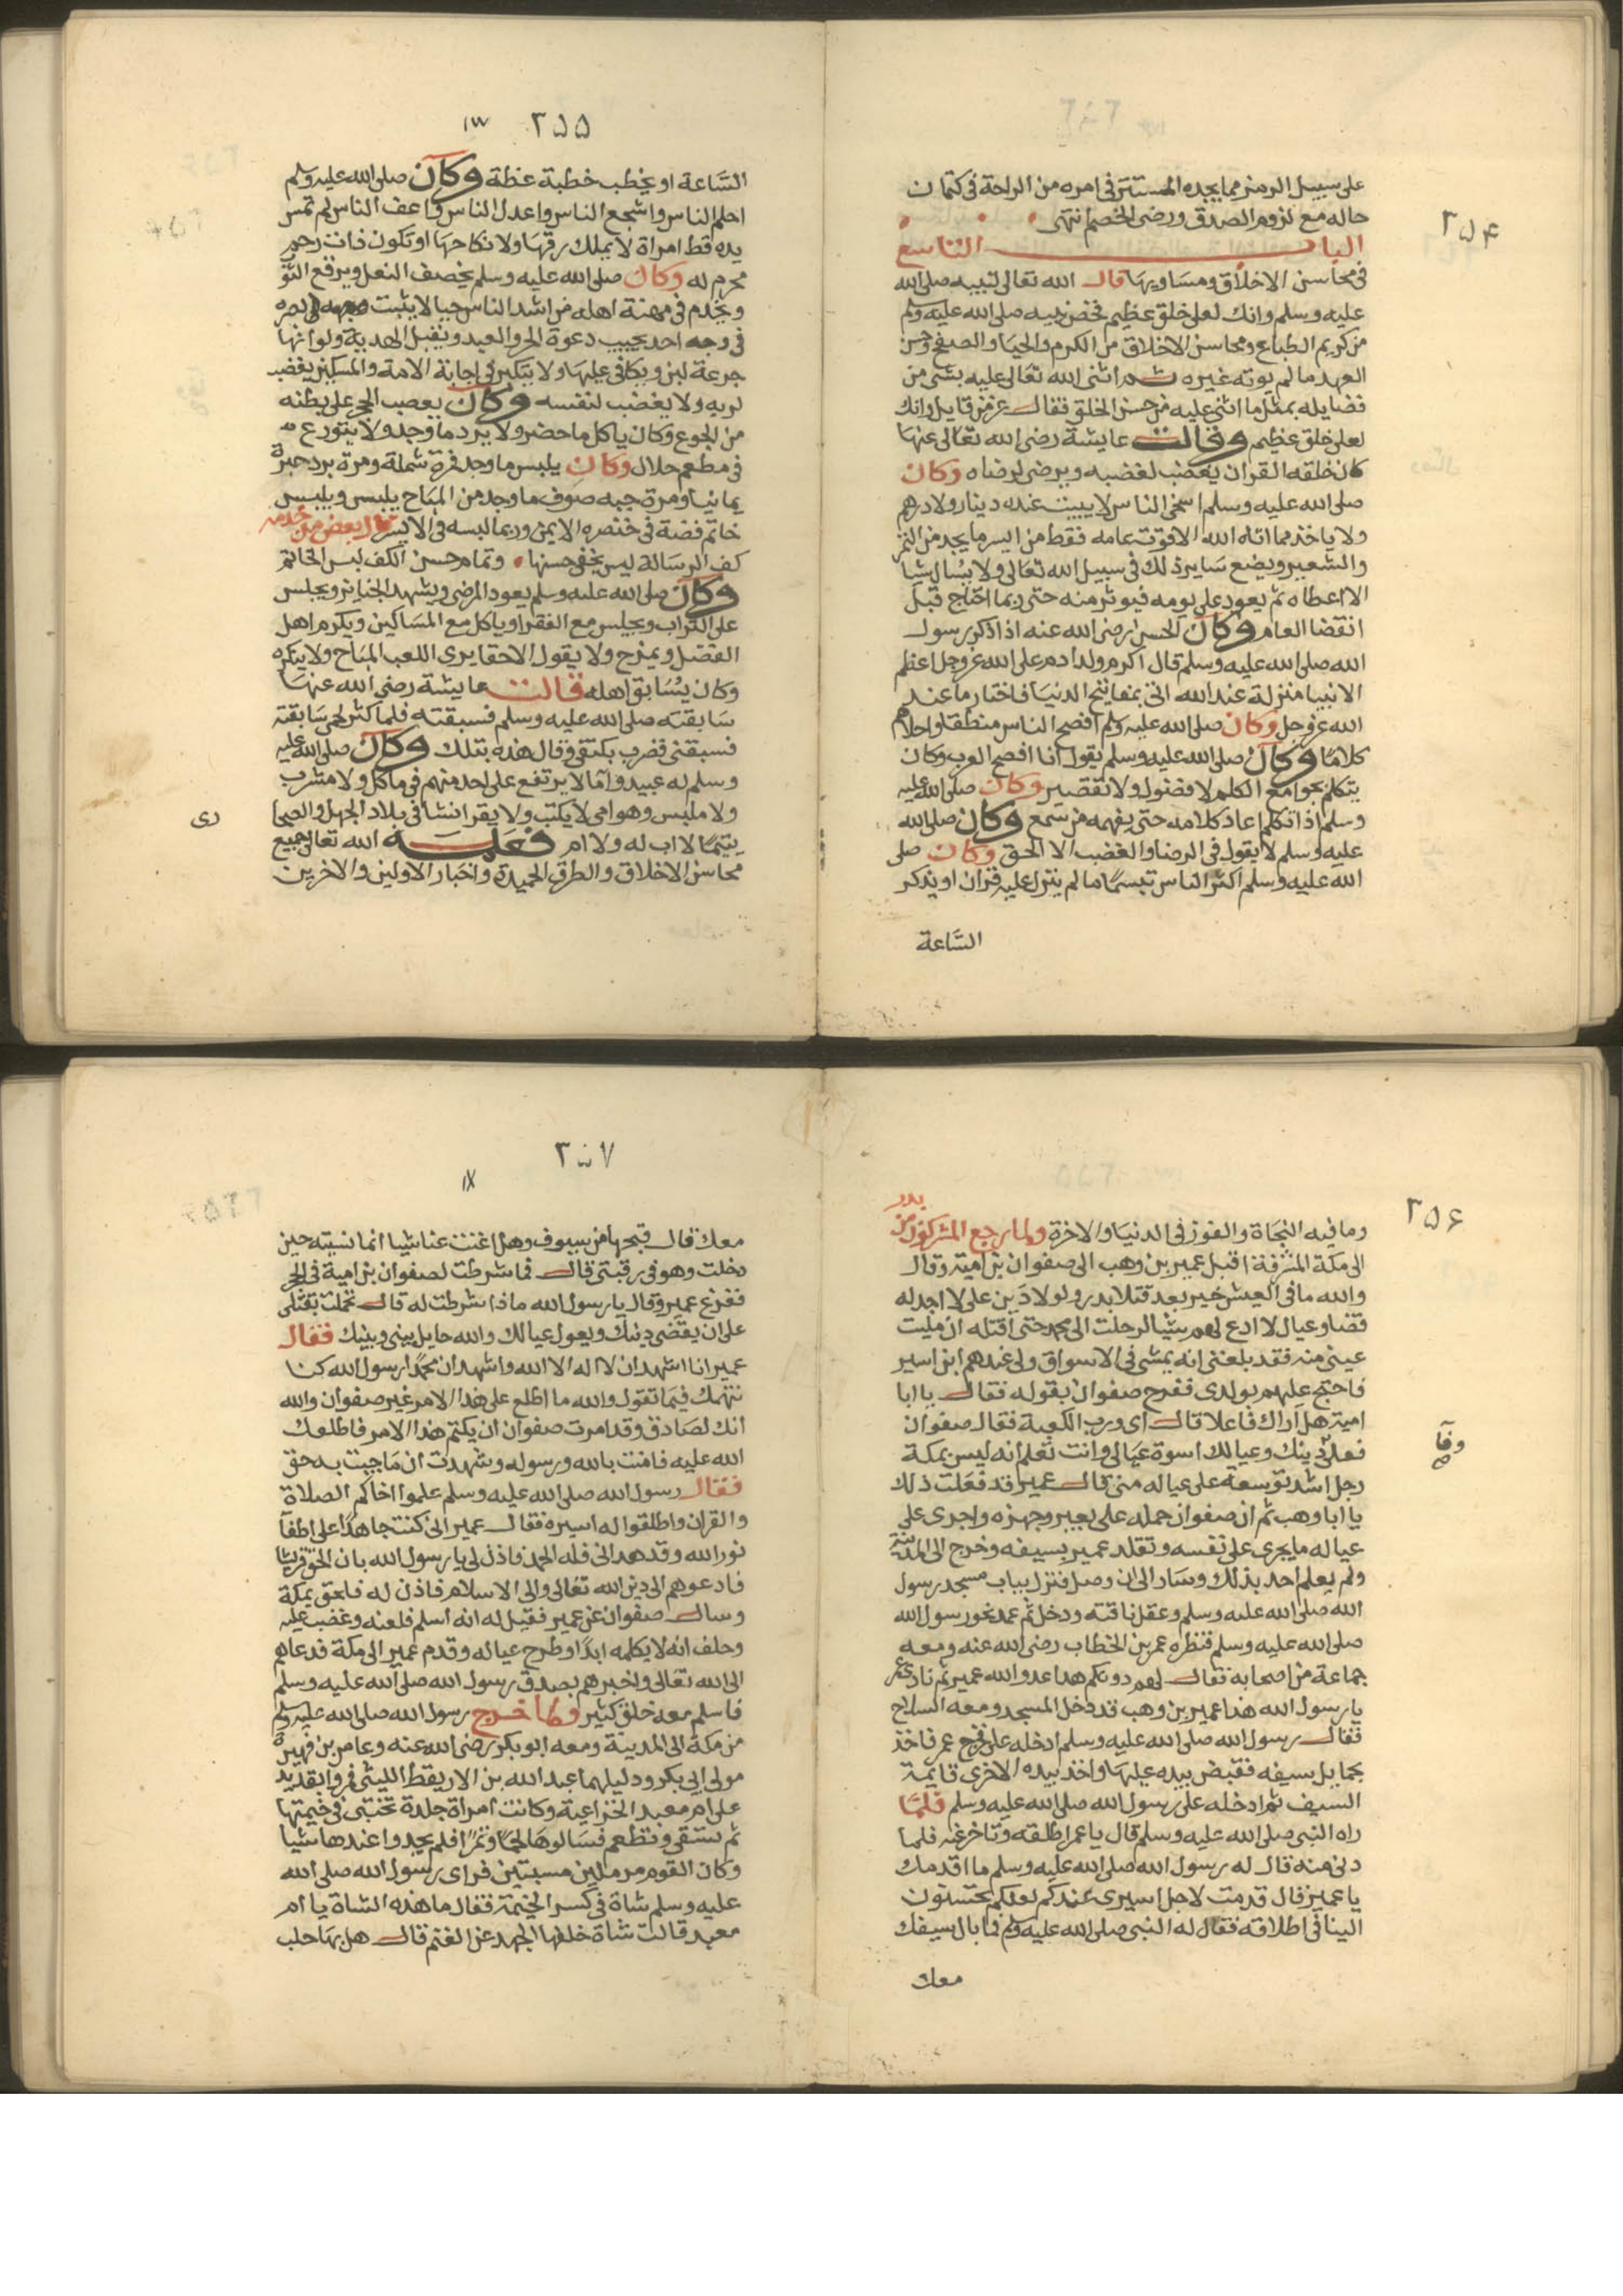 ۲۵۴
على سبيل الرمز مما يجده المستتر فى امره من الراحة فى كتمان
حاله مع لزوم الصدق ورضى الخصم انتهى
الباب التاسع
فى محاسن الاخلاق ومساويها قال الله تعالى لنبيه صلى الله
عليه وسلم وانك لعلى خلق عظيم فخص نبيه صلى الله عليه وسلم
من كريم الطباع ومحاسن الاخلاق من الكرم والحيا والصفح وحسن
العهد ما لم يوته غيره ثم اثنى الله تعالى عليه بشى من
فضايله بمثل ما اثنى عليه من حسن الخلق فقال عز من قايل وانك
لعلى خلق عظيم وقالت عايشة رضى الله تعالى عنها
كان خلقه القران يغضب لغضبه ويرضى لرضاه وكان
صلى الله عليه وسلم اسخى الناس لا يبيت عنده دينار ولا درهم
ولا ياخذ مما اتاه الله الا قوت عامه فقط من ايسر ما يجد من التمر
والشعير ويضع ساير ذلك فى سبيل الله تعالى ولا يسال شيا
الا اعطاه ثم يعود على يومه فيوثر منه حتى ربما احتاج قبل
انقضا العام وكان الحسن رضى الله عنه اذا ذكر رسول
الله صلى الله عليه وسلم قال اكرم ولد ادم على الله عز وجل اعظم
الانبيا منزلة عند الله اتى بمفاتيح الدنيا فاختار ما عند
الله عز وجل وكان صلى الله عليه وسلم افصح الناس منطقا واحلاهم
كلاما وكان صلى الله عليه وسلم يقول انا افصح العرب وكان
يتكلم بجوامع الكلم لا فضول ولا تقصير وكان صلى الله عليه
وسلم اذا تكلم اعاد كلامه حتى يفهمه من سمع وكان صلى الله
عليه وسلم لا يقول فى الرضا والغضب الا الحق وكان صلى
الله عليه وسلم اكثر الناس تبسما ما لم ينزل عليه قران او يذكر
الساعة
۲۵۵
۱۳
الساعة او يخطب خطبة عظة وكان صلى الله عليه وسلم
احلم الناس واشجع الناس واعدل الناس واعف الناس لم تمس
يده قط امراة لا يملك رقها ولا نكاحها او تكون ذات رحم
محرم له وكان صلى الله عليه وسلم يخصف النعل ويرقع الثو
ويخدم فى مهنة اهله من اشد الناس حيا لا يثبت بصره
فى وجه احد يجيب دعوة الحر والعبد ويقبل الهدية ولو انها
جرعة لبن ويكافى عليها ولا يتكبر فى اجابة الامة والمسكين يغضب
لربه ولا يغضب لنفسه وكان يعصب الحجر على بطنه
من الجوع وكان ياكل ما حضر ولا يرد ما وجد ولا يتورع
فى مطعم حلال وكان يلبس ما وجد فمرة شملة ومرة برد حبرة
يمانيا ومرة جبه صوف ما وجد من المباح يلبس ويلبس
خاتم فضة فى خنصره الايمن وربما لبسه فى الايسر
كف الرسالة ليس يخفى حسنها وتمام حسن الكف لبس الخاتم
وكان صلى الله عليه وسلم يعود المرضى ويشهد الجنايز ويجلس
على التراب ويجلس مع الفقرا وياكل مع المساكين ويكرم اهل
الفضل ويمزح ولا يقول الا حقا يرى اللعب المباح ولا ينكره
وكان يسابق اهله قالت عايشة رضى الله عنها
سابقته صلى الله عليه وسلم فسبقته فلما كثر لحمى سابقته
فسبقنى فضرب بكتفى وقال هذه بتلك وكان صلى الله عليه
وسلم له عبيد واما لا يرتفع على احد منهم فى ماكل ولا مشرب
ولا ملبس وهو امى لا يكتب ولا يقرا نشا فى بلاد الجهل والصحا
رى
يتيما لا اب له ولا ام فعلمه الله تعالى جميع
محاسن الاخلاق والطرق الحميدة واخبار الاولين والاخرين
۲۵۶
وما فيه النجاة والفوز فى الدنيا والاخرة ولما رجع المشركون من بدر
الى مكة المشرفة اقبل عمير بن وهب الى صفوان بن امية وقال
والله ما فى العيش خير بعد قتلا بدر ولولا دين على لا اجد له
قضا وعيال لا ادع لهم شيا لرحلت الى محمد حتى اقتله ان مليت
عينى منه فقد بلغنى انه يمشى فى الاسواق ولى عندهم ابن اسير
فاحتج عليهم بولدى ففرح صفوان بقوله فقال يا ابا
امية هل اراك فاعلا قال اى ورب الكعبة فقال صفوان
فعلى دينك وعيالك اسوة عيالى وانت تعلم انه ليس بمكة
رجل اشد توسعة على عياله منى قال عمير قد فعلت ذلك
يا ابا وهب ثم ان صفوان حمله على بعير وجهزه واجرى على
عياله ما يجرى على نفسه وتقلد عمير بسيفه وخرج الى المدينة
ولم يعلم احد بذلك وسار الى ان وصل فنزل بباب مسجد رسول
الله صلى الله عليه وسلم وعقل ناقته ودخل ثم عمد نحو رسول الله
صلى الله عليه وسلم فنظره عمر بن الخطاب رضى الله عنه ومعه
جماعة من اصحابه فقال لهم دونكم هذا عدو الله عمير ثم نادى عمر
يا رسول الله هذا عمير بن وهب قد دخل المسجد ومعه السلاح
فقال رسول الله صلى الله عليه وسلم ادخله على فخرج عمر فاخذ
بحمايل سيفه فقبض بيده عليها واخذ بيده الاخرى قايمة
السيف ثم ادخله على رسول الله صلى الله عليه وسلم فلما
راه النبى صلى الله عليه وسلم قال يا عمر اطلقه وتاخر عنه فلما
دنى منه قال له رسول الله صلى الله عليه وسلم ما اقدمك
يا عمير قال قدمت لاجل اسيرى عندكم لعلكم تحسنون
الينا فى اطلاقه فقال له النبى صلى الله عليه وسلم فما بال سيفك
معك
۲۵۷
معك قال قبحها من سيوف وهل اغنت عنا شيا انما نسيته حين
دخلت وهو فى رقبتى قال فما شرطت لصفوان بن امية فى الحجر
ففزع عمير وقال يا رسول الله ماذا شرطت له قال تحملت بقتلى
على ان يقضى دينك ويعول عيالك والله حايل بينى وبينك فقال
عمير انا اشهد ان لا اله الا الله واشهد ان محمدا رسول الله كنا
نتهمك فيما تقول والله ما اطلع على هذا الامر غير صفوان والله
انك لصادق وقد امرت صفوان ان يكتم هذا الامر فاطلعك
الله عليه فامنت بالله ورسوله وشهدت ان ما جيت به حق
فقال رسول الله صلى الله عليه وسلم علموا اخاكم الصلاة
والقران واطلقوا له اسيره فقال عمير انى كنت جاهدا على اطفا
نور الله وقد هدانى فله الحمد فاذن لى يا رسول الله بان الحق قريشا
فادعوهم الى دين الله تعالى والى الاسلام فاذن له فلحق بمكة
وسال صفوان عن عمير فقيل له انه اسلم فلعنه وغضب عليه
وحلف انه لا يكلمه ابدا وطرح عياله وقدم عمير الى مكة فدعاهم
الى الله تعالى واخبرهم بصدق رسول الله صلى الله عليه وسلم
فاسلم معه خلق كثير ولما خرج رسول الله صلى الله عليه وسلم
من مكة الى المدينة ومعه ابو بكر رضى الله عنه وعامر بن فهيرة
مولى ابى بكر ودليلهما عبد الله بن الاريقط الليثى فمروا بقديد
على ام معبد الخزاعية وكانت امراة جلدة تحتبى فى خيمتها
ثم تسقى وتطعم فسالوها لحما وتمرا فلم يجدوا عندها شيا
وكان القوم مرملين مسنتين فراى رسول الله صلى الله
عليه وسلم شاة فى كسر الخيمة فقال ما هذه الشاة يا ام
معبد قالت شاة خلفها الجهد عن الغنم قال هل بها حلب